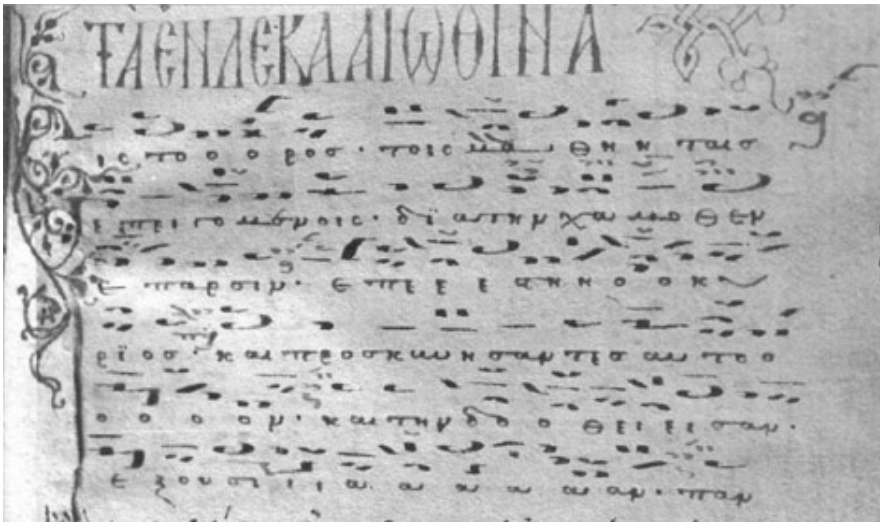 ΤΑ ΕΝΔΕΚΑ ΑΙΩΘΙΝΑ
ις το ο ο ρος · τοις μα θη η ταις
ε πει γο με νοις · δϊ α την χα μο θεν
ε παρσιν · ε πε ε ε στη η ο ο κυ
ρϊ ος · και προσκυνησαντες αυ το ο
ο ο ο ον · και την δο ο θει ει σαν ·
ε ξου σι ι ι α α α α α αν · παν